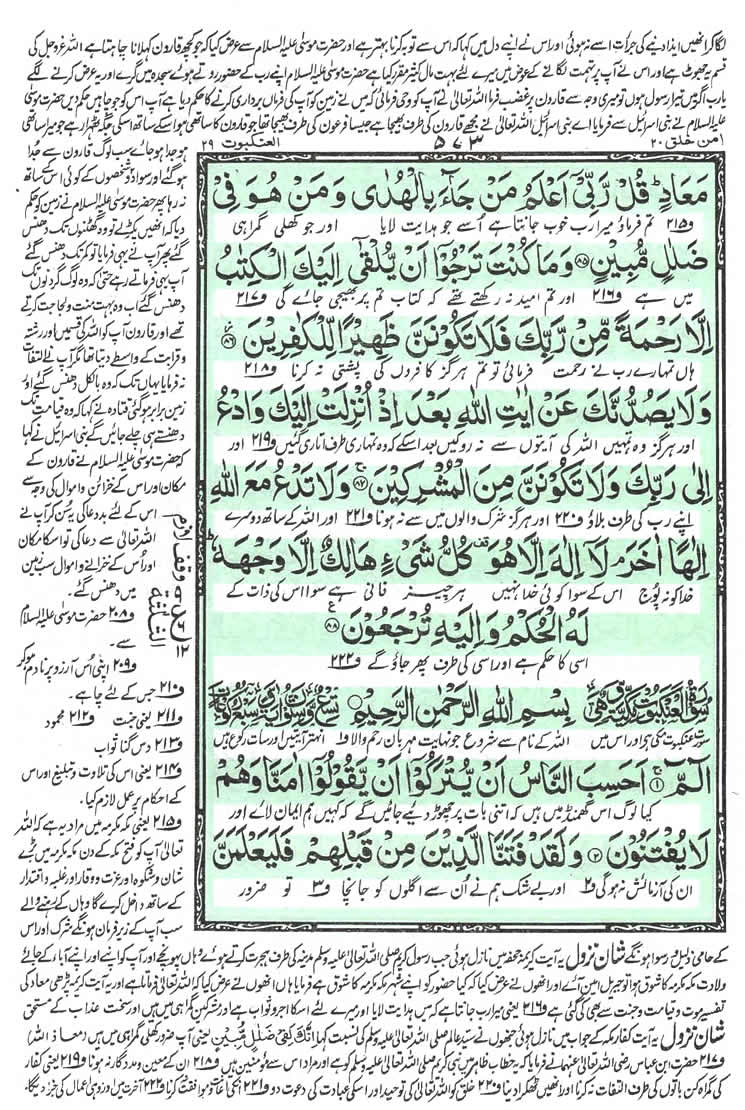 لگا کر انھیں ایذا دینے کی جرأت اسے نہ ہوئی اور اس نے اپنے دل میں کہا کہ اس سے توبہ کرنا بہتر ہے اور حضرت موسیٰ علیہ السلام سے عرض کیا کہ جو کچھ قارون کہلانا چاہتا ہے اللہ عزوجل کی
قسم یہ جھوٹ ہے اور اس نے آپ پر تہمت لگانے کے عوض میں میرے لئے بہت مال کثیر مقرر کیا ہے حضرت موسیٰ علیہ السلام اپنے رب کے حضور روتے ہوئے سجدہ میں گرے اور یہ عرض کرنے لگے
یارب اگر میں تیرا رسول ہوں تو میری وجہ سے قارون پر غضب فرما اللہ تعالیٰ نے آپ کو وحی فرمائی کہ میں نے زمین کو آپ کی فرماں برداری کرنے کا حکم دیا ہے آپ اس کو جو چاہیں حکم دیں حضرت موسیٰ
علیہ السلام نے بنی اسرائیل سے فرمایا اے بنی اسرائیل اللہ تعالیٰ نے مجھے قارون کی طرف بھیجا ہے جیسا فرعون کی طرف بھیجا تھا جو قارون کا ساتھی ہو اسکے ساتھ اسکی جگہ ٹھہرا رہے جو میرا ساتھی
امن خلق ۲۰
۵۷۳
العنکبوت ۲۹
مَعَادٍ ؕ قُلْ رَّبِّیْۤ اَعْلَمُ مَنْ جَآءَ بِالْهُدٰی وَ مَنْ هُوَ فِیْ
ف۲۱۵ تم فرماؤ میرا رب خوب جانتا ہے اُسے جو ہدایت لایا اور جو کھلی گمراہی
ضَلٰلٍ مُّبِیْنٍ ﴿۸۵﴾ وَ مَا كُنْتَ تَرْجُوْۤا اَنْ یُّلْقٰۤی اِلَیْكَ الْكِتٰبُ
میں ہے ف۲۱۶ اور تم امید نہ رکھتے تھے کہ کتاب تم پر بھیجی جائے گی ف۲۱۷
اِلَّا رَحْمَةً مِّنْ رَّبِّكَ فَلَا تَكُوْنَنَّ ظَهِیْرًا لِّلْكٰفِرِیْنَ ﴿۸۶﴾
ہاں تمہارے رب نے رحمت فرمائی تو تم ہرگز کافروں کی پشتی نہ کرنا ف۲۱۸
وَ لَا یَصُدُّنَّكَ عَنْ اٰیٰتِ اللّٰهِ بَعْدَ اِذْ اُنْزِلَتْ اِلَیْكَ وَ ادْعُ
اور ہرگز وہ تمہیں اللہ کی آیتوں سے نہ روکیں بعد اسکے کہ وہ تمہاری طرف اتاری گئیں ف۲۱۹ اور
اِلٰی رَبِّكَ وَ لَا تَكُوْنَنَّ مِنَ الْمُشْرِكِیْنَ ﴿۸۷﴾ وَ لَا تَدْعُ مَعَ اللّٰهِ
اپنے رب کی طرف بلاؤ ف۲۲۰ اور ہرگز شرک والوں میں سے نہ ہونا ف۲۲۱ اور اللہ کے ساتھ دوسرے
اِلٰهًا اٰخَرَ ۘ لَاۤ اِلٰهَ اِلَّا هُوَ ۫ كُلُّ شَیْءٍ هَالِكٌ اِلَّا وَجْهَهٗ ؕ
خدا کو نہ پوج اس کے سوا کوئی خدا نہیں ہر چیز فانی ہے سوا اس کی ذات کے
لَهُ الْحُكْمُ وَ اِلَیْهِ تُرْجَعُوْنَ ﴿۸۸﴾
اسی کا حکم ہے اور اسی کی طرف پھر جاؤ گے ف۲۲۲
سُوْرَةُ الْعَنْكَبُوْتِ مَكِّیَّةٌ وَّهِیَ بِسْمِ اللّٰهِ الرَّحْمٰنِ الرَّحِیْمِ تِسْعٌ وَّسِتُّوْنَ اٰیَةً وَّسَبْعُ رُكُوْعَاتٍ
سورت عنکبوت مکی ہے اور اس میں اللہ کے نام سے شروع جو نہایت مہربان رحم والا ف۱ انہتر آیتیں اور سات رکوع ہیں
الٓمّٓ ﴿۱﴾ اَحَسِبَ النَّاسُ اَنْ یُّتْرَكُوْۤا اَنْ یَّقُوْلُوْۤا اٰمَنَّا وَ هُمْ
کیا لوگ اس گھمنڈ میں ہیں کہ اتنی بات پر چھوڑ دیے جائیں گے کہ کہیں ہم ایمان لائے اور
لَا یُفْتَنُوْنَ ﴿۲﴾ وَ لَقَدْ فَتَنَّا الَّذِیْنَ مِنْ قَبْلِهِمْ فَلَیَعْلَمَنَّ
ان کی آزمائش نہ ہوگی ف۲ اور بے شک ہم نے اُن سے اگلوں کو جانچا ف۳ تو ضرور
ہو جدا ہو جائے سب لوگ قارون سے جدا
ہو گئے اور سوا دو شخصوں کے کوئی اس کے ساتھ
نہ رہا پھر حضرت موسیٰ علیہ السلام نے زمین کو حکم
دیا کہ انھیں پکڑ لے تو وہ گھٹنوں تک دھنس
گئے پھر آپ نے یہی فرمایا تو کمر تک دھنس گئے
آپ یہی فرماتے رہے حتی کہ وہ لوگ گردنوں تک
دھنس گئے اب وہ بہت منت و لجاجت کرتے
تھے اور قارون آپ کو اللہ کی قسمیں اور رشتہ
و قرابت کے واسطے دیتا تھا مگر آپ نے التفات
نہ فرمایا یہاں تک کہ وہ بالکل دھنس گئے اور
زمین برابر ہو گئی قتادہ نے کہا کہ وہ قیامت تک
دھنستے ہی چلے جائیں گے بنی اسرائیل نے کہا
کہ حضرت موسیٰ علیہ السلام نے قارون کے
مکان اور اس کے خزائن و اموال کی وجہ سے
اس کے لئے بددعا کی یہ سن کر آپ نے
اللہ تعالیٰ سے دعا کی تو اسکا مکان
اور اُس کے خزانے و اموال سب زمین
میں دھنس گئے۔
ف۲۰۸ حضرت موسیٰ علیہ السلام
سے۔
ف۲۰۹ اپنی اُس آرزو پر نادم ہو کر
ف۲۱۰ جس کے لئے چاہے۔
ف۲۱۱ یعنی جنت ف۲۱۲ محمود
ف۲۱۳ دس گنا ثواب
ف۲۱۴ یعنی اس کی تلاوت و تبلیغ اور اس
کے احکام پر عمل لازم کیا۔
ف۲۱۵ یعنی مکہ مکرمہ میں مراد یہ ہے کہ اللہ
تعالیٰ آپ کو فتح مکہ کے دن مکہ مکرمہ میں بڑے
شان و شکوہ اور عزت و وقار اور غلبہ و اقتدار
کے ساتھ داخل کرے گا وہاں کے رہنے والے
سب آپ کے زیر فرمان ہونگے شرک اور اس
کے حامی ذلیل و رسوا ہونگے شان نزول یہ آیت کریمہ جحفہ میں نازل ہوئی جب رسول کریم صلی اللہ تعالیٰ علیہ وسلم مدینہ کی طرف ہجرت کرتے ہوئے وہاں پہونچے اور آپ کو اپنے اور اپنے آباء کے جائے
ولادت مکہ مکرمہ کا شوق ہوا تو جبریل امین آئے اور انھوں نے عرض کیا کہ کیا حضور کو اپنے شہر مکہ مکرمہ کا شوق ہے فرمایا ہاں انھوں نے عرض کیا کہ اللہ تعالیٰ فرماتا ہے اور یہ آیت کریمہ پڑھی معاد کی
تفسیر موت و قیامت و جنت سے بھی کی گئی ہے ف۲۱۶ یعنی میرا رب جانتا ہے کہ میں ہدایت لایا اور میرے لئے اسکا اجر و ثواب ہے اور مشرکین گمراہی میں ہیں اور سخت عذاب کے مستحق
شان نزول یہ آیت کفار مکہ کے جواب میں نازل ہوئی جنھوں نے سید عالم صلی اللہ تعالیٰ علیہ وسلم کی نسبت کہا اِنَّكَ لَفِیْ ضَلٰلٍ مُّبِیْنٍ یعنی آپ ضرور کھلی گمراہی میں ہیں (معاذ اللہ)
ف۲۱۷ حضرت ابن عباس رضی اللہ تعالیٰ عنہما نے فرمایا کہ یہ خطاب ظاہر میں نبی کریم صلی اللہ تعالیٰ علیہ وسلم کو ہے اور مراد اس سے مومنین ہیں ف۲۱۸ ان کے معین و مددگار نہ ہونا ف۲۱۹ یعنی کفار
کی گمراہ کن باتوں کی طرف التفات نہ کرنا اور انھیں ٹھکرا دینا ف۲۲۰ خلق کو اللہ تعالیٰ کی توحید اور اسکی عبادت کی دعوت دو ف۲۲۱ انکی اعانت و موافقت نہ کرنا ف۲۲۲ آخرت میں اور وہی اعمال کی جزا دیگا۔